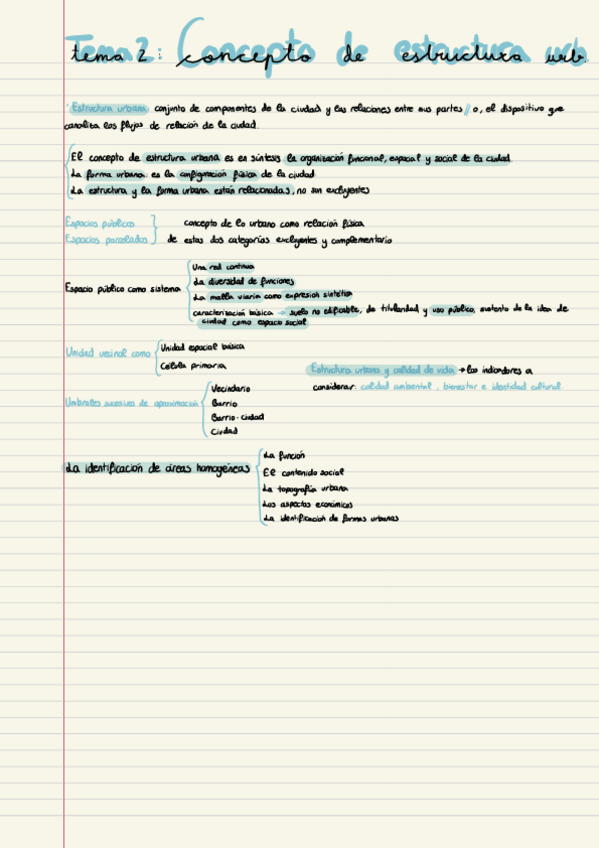 tema 2: Concepto de estructura urb.
Estructura urbana: conjunto de componentes de la ciudad y las relaciones entre sus partes // o, el dispositivo que
canaliza los flujos de relación de la ciudad.
El concepto de estructura urbana es en síntesis la organización funcional, espacial y social de la ciudad
La forma urbana es la configuración física de la ciudad
La estructura y la forma urbana están relacionadas, no son excluyentes
Espacios públicos concepto de lo urbano como relación física
Espacios parcelados de estas dos categorías excluyentes y complementario
Espacio público como sistema
Una red continua
La diversidad de funciones
La malla viaria como expresión sintética
caracterización básica → suelo no edificable, de titularidad y uso público, sustento de la idea de
ciudad como espacio social
Unidad vecinal como
Unidad espacial básica
Célula primaria
Estructura urbana y calidad de vida → los indicadores a
considerar: calidad ambiental, bienestar e identidad cultural.
Umbrales sucesivos de aproximación
Vecindario
Barrio
Barrio-ciudad
Ciudad
La identificación de áreas homogéneas
La función
El contenido social
La topografía urbana
Los aspectos económicos
La identificación de formas urbanas